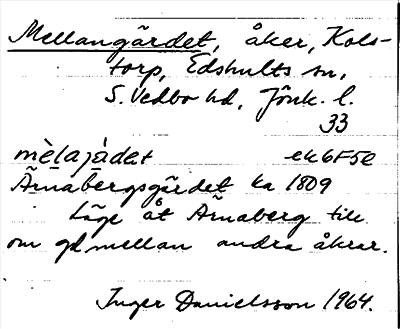 Mellangärdet, åker, Kols-
torp, Edshults sn,
S. Vedbo hd, Jönk. l.
33
mèlajàdet ek6F5e
Ärnabergsgärdet ka 1809
Låge åt Ärnaberg till
om gd mellan andra åkrar.
Inger Danielsson 1964.